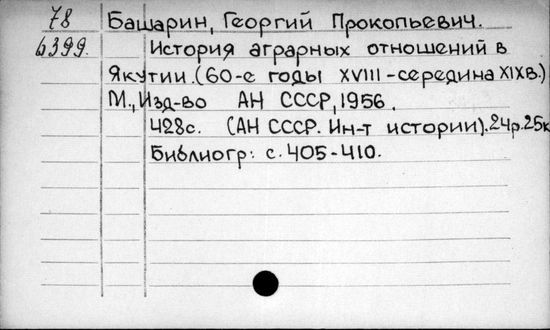 78 Башарин, Георгий Прокопьевич.
6399. История аграрных отношений в
Якутии. (60-е годы XVIII - середина XIX в.)
М., Изд-во АН СССР, 1956.
428с. (АН СССР. Ин-т истории). 24р.25к
Библиогр: с. 405-410.